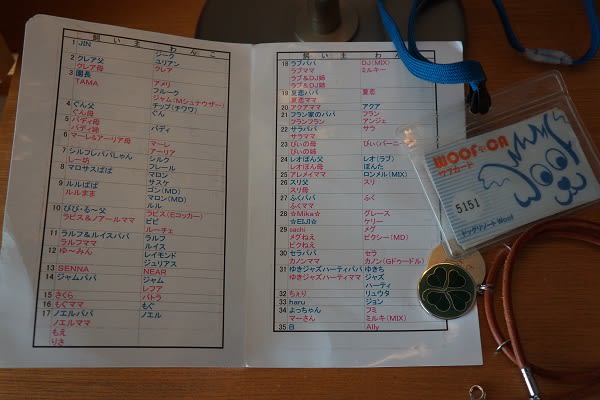 飼い主 わんこ
1 JIN ジーク
ユリアン
2 クレア父 クレア
クレア母
3 園長 アメリ
TAMA フルーク
ジャム(Mシュナウザー)
4 ぐん父 チップ(チワワ)
ぐん母 ぐん
5 バディ母
バディ姉 バディ
6 マーレ&アーリア母 マーレ
アーリア
7 シルフレパパしゃん シルク
レー坊 フレール
8 マロサスパパ マロン
サスケ
9 ルルぱぱ ゴン(MD)
ルルまま マロン(MD)
ルル
10 びび・る〜父 ラピス(Eコッカー)
ラピス&ノアールママ ビビ
ルーチェ
11 ラルフ&ルイスパパ ラルフ
ラルフママ ルイス
12 ゆ〜みん レイモンド
ジュリアス
13 SENNA NEAR
14 ジャムパパ ジャム
レフア
15 さくら パトラ
16 もぐママ もぐ
17 ノエルパパ ノエル
ノエルママ
もえ
りさ
飼い主 わん
18 ラブパパ DJ(MIX)
ラブママ ミルキー
ラブ&DJ姉
ラブ&DJ姉
19 夏恋パパ 夏恋
夏恋ママ
20 アクアママ アクア
21 フラン家のパパ フラン
フランフラン アンジェ
22 サラパパ サラ
サラママ
23 びぃの母
びぃの姉
24 レオぽん父 レオ(ラブ)
レオぽん母 ぽんた
25 アレメイママ ロンメル(MIX)
26 スリ父 スリ
スリ母
27 ふくパパ ふく
ふくママ
28 ☆Mika☆ グレース
☆EIJI☆ ケリー
29 sachi メグ
メグねえ ピクシー(MD)
ピクねえ
30 セラパパ セラ
カノンママ カノン(Gドゥードル)
31 ゆきジャズハーティパパ ゆきち
ゆきジャズハーティママ ジャズ
ハーティ
32 ちぇり リュウタ
33 haru ジョン
34 よっちゃん フミ
マーさん ミルキ(MIX)
35 白 Ally
WOOFモCA
ワフカード
5151
ドッグリゾート Woof